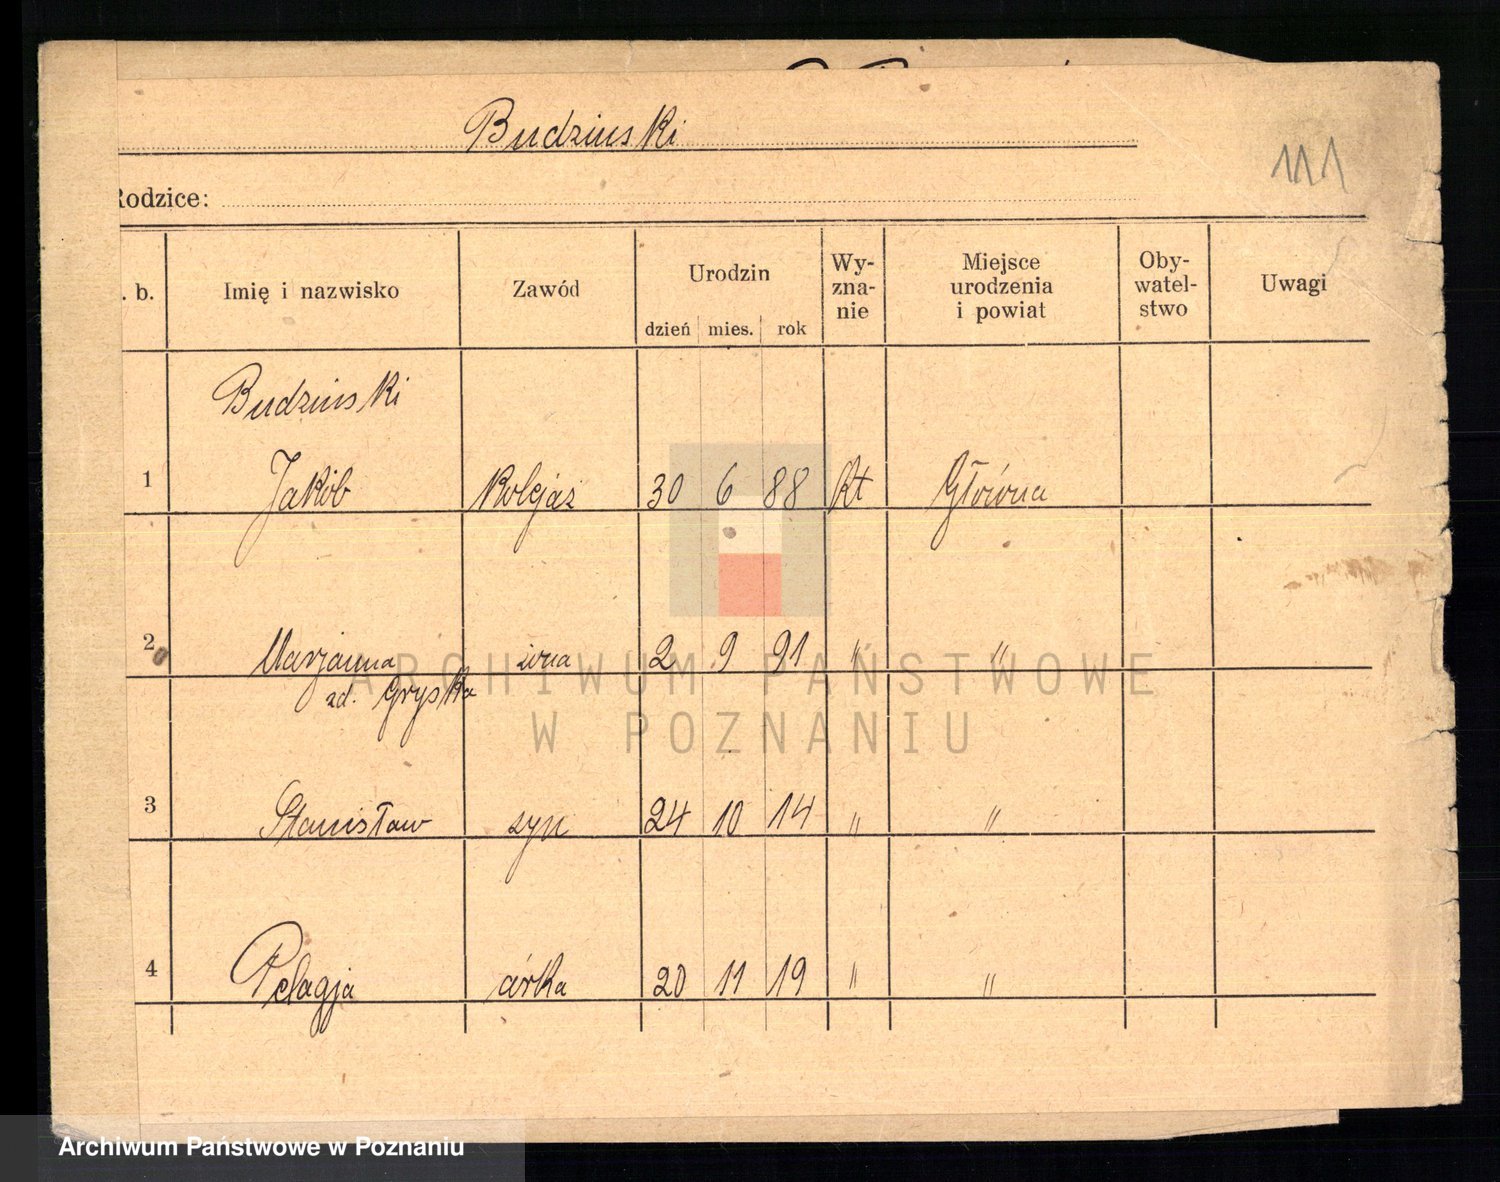 Budzinski
111
Rodzice:
. b. Imię i nazwisko Zawód Urodzin dzień mies. rok Wy-zna-nie Miejsce urodzenia i powiat Oby-watel-stwo Uwagi
Budzinski
1 Jakób Kolejaż 30 6 88 Rt Główna
2 Marjanna żona 2 9 91 " "
zd. Gryska
3 Stanisław syn 24 10 14 " "
4 Pelagja córka 20 11 19 " "
ARCHIWUM PAŃSTWOWE
W POZNANIU
Archiwum Państwowe w Poznaniu